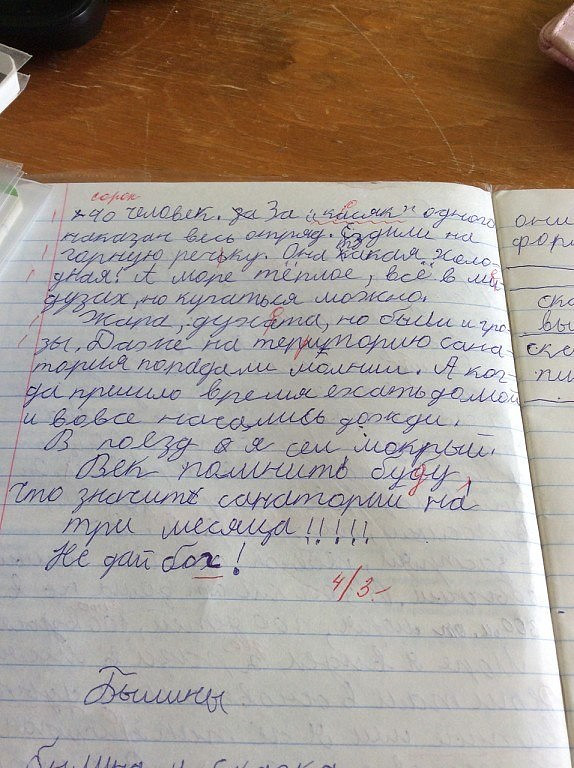 сорок
40 человек. За "касяк" одного
наказан весь отряд. Ездили на
горную речьку. Она какая холо-
дная! А море тёплое, всё в ме-
дузах, но купаться можно.
Жара, духота, но были и гро-
зы. Даже на територию сана-
тория попадали молнии. А ког-
да пришло время ехать домой
и вовсе начались дожди.
В поезд я сел мокрый.
Век помнить буду,
что значить санаторий на
три месяца!!!!!
Не дай бох!
4/3-
Былины
былина и сказка
они
фор
ска
вы
ске
пи